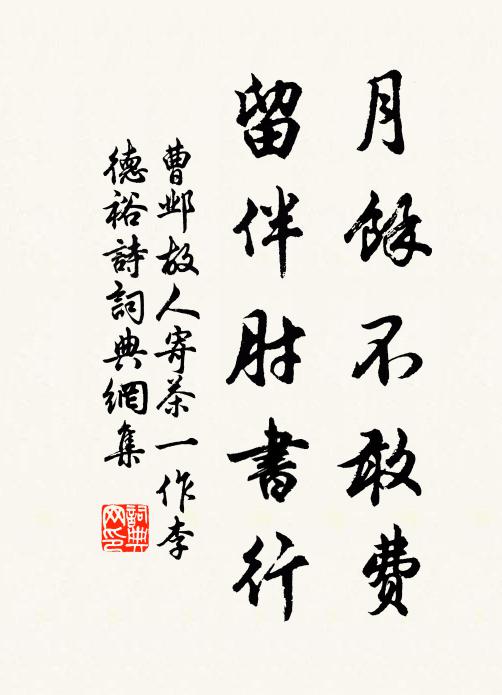 月餘不敢費
留伴肘書行
曹邺故人寄茶一作李
德裕詩詞典網集
詞典
网印